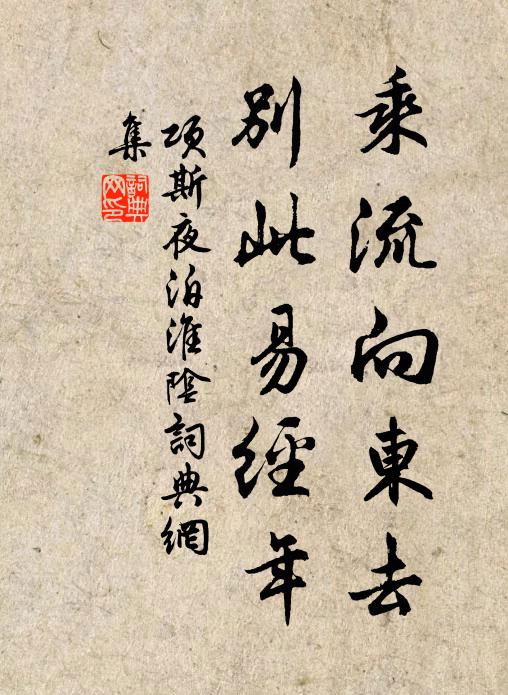 乘流向東去
別此易經年
項斯夜泊淮陰詞典網
集
詞典
网印